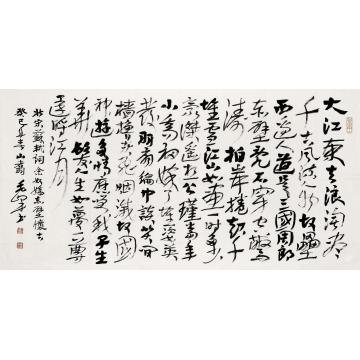 大江東去浪淘盡
千古風流人物故壘
西邊人道是三國周郎
赤壁亂石穿空驚
濤拍岸捲起千
堆雪江山如畫一時多少
豪傑遙想公瑾當年
小喬初嫁了雄姿英
發羽扇綸巾談笑間
檣櫓灰飛烟滅故國
神遊多情應笑我早生
華髮人生如夢一尊
還酹江月
北宋蘇軾詞念奴嬌赤壁懷古
癸巳年春山齋